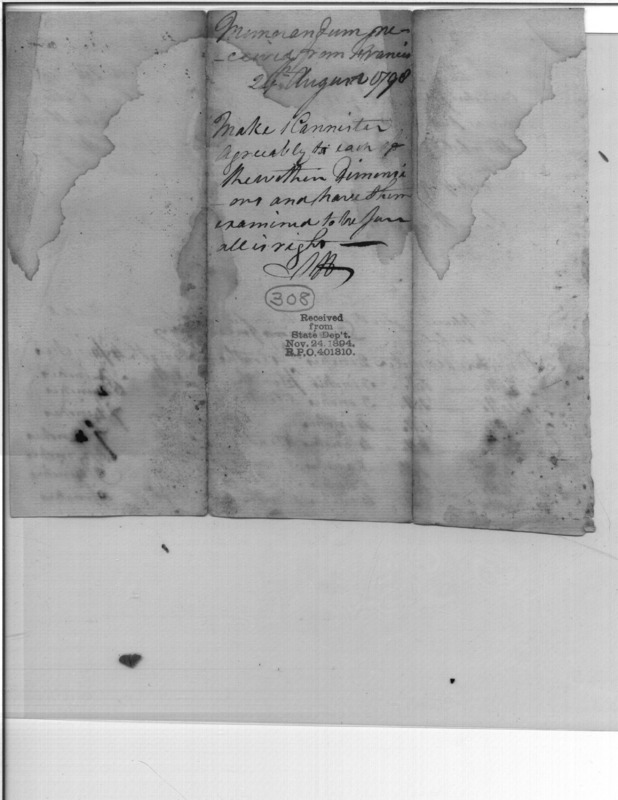 Memorandum re-
-ceived from Francis
26th August 1798
Make Cannister
agreeably to each of
the within Dimenzi
ons and have them
examined to be sure
all is right —
308
Received
from
State Dep't.
Nov. 24. 1894.
R.P.O. 401310.